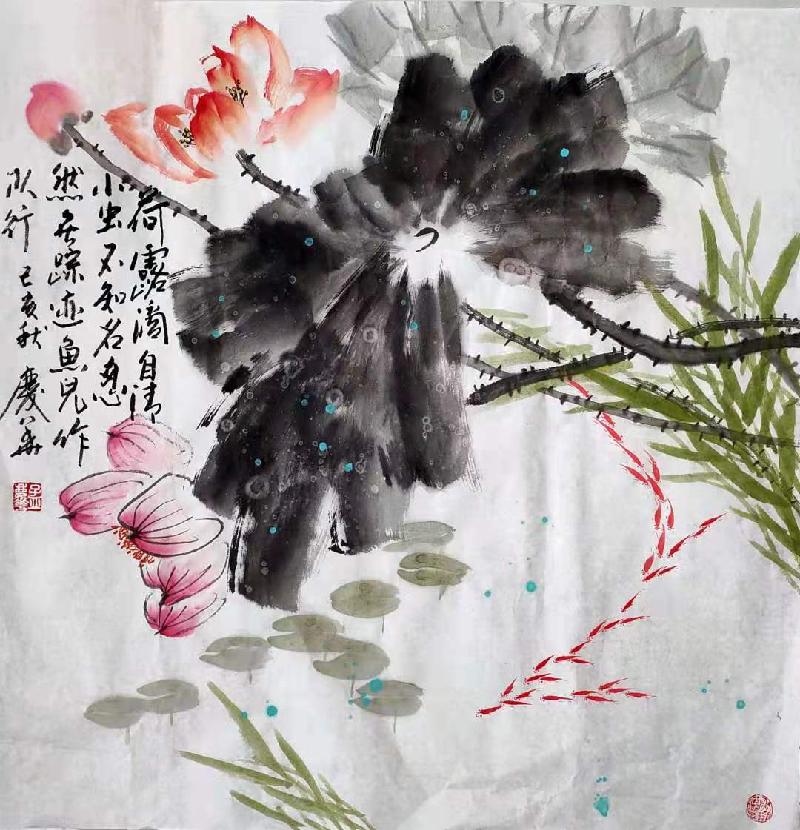 荷露滴自清
小虫不知名忽
然无踪迹鱼儿作
队行 己亥秋 庆华